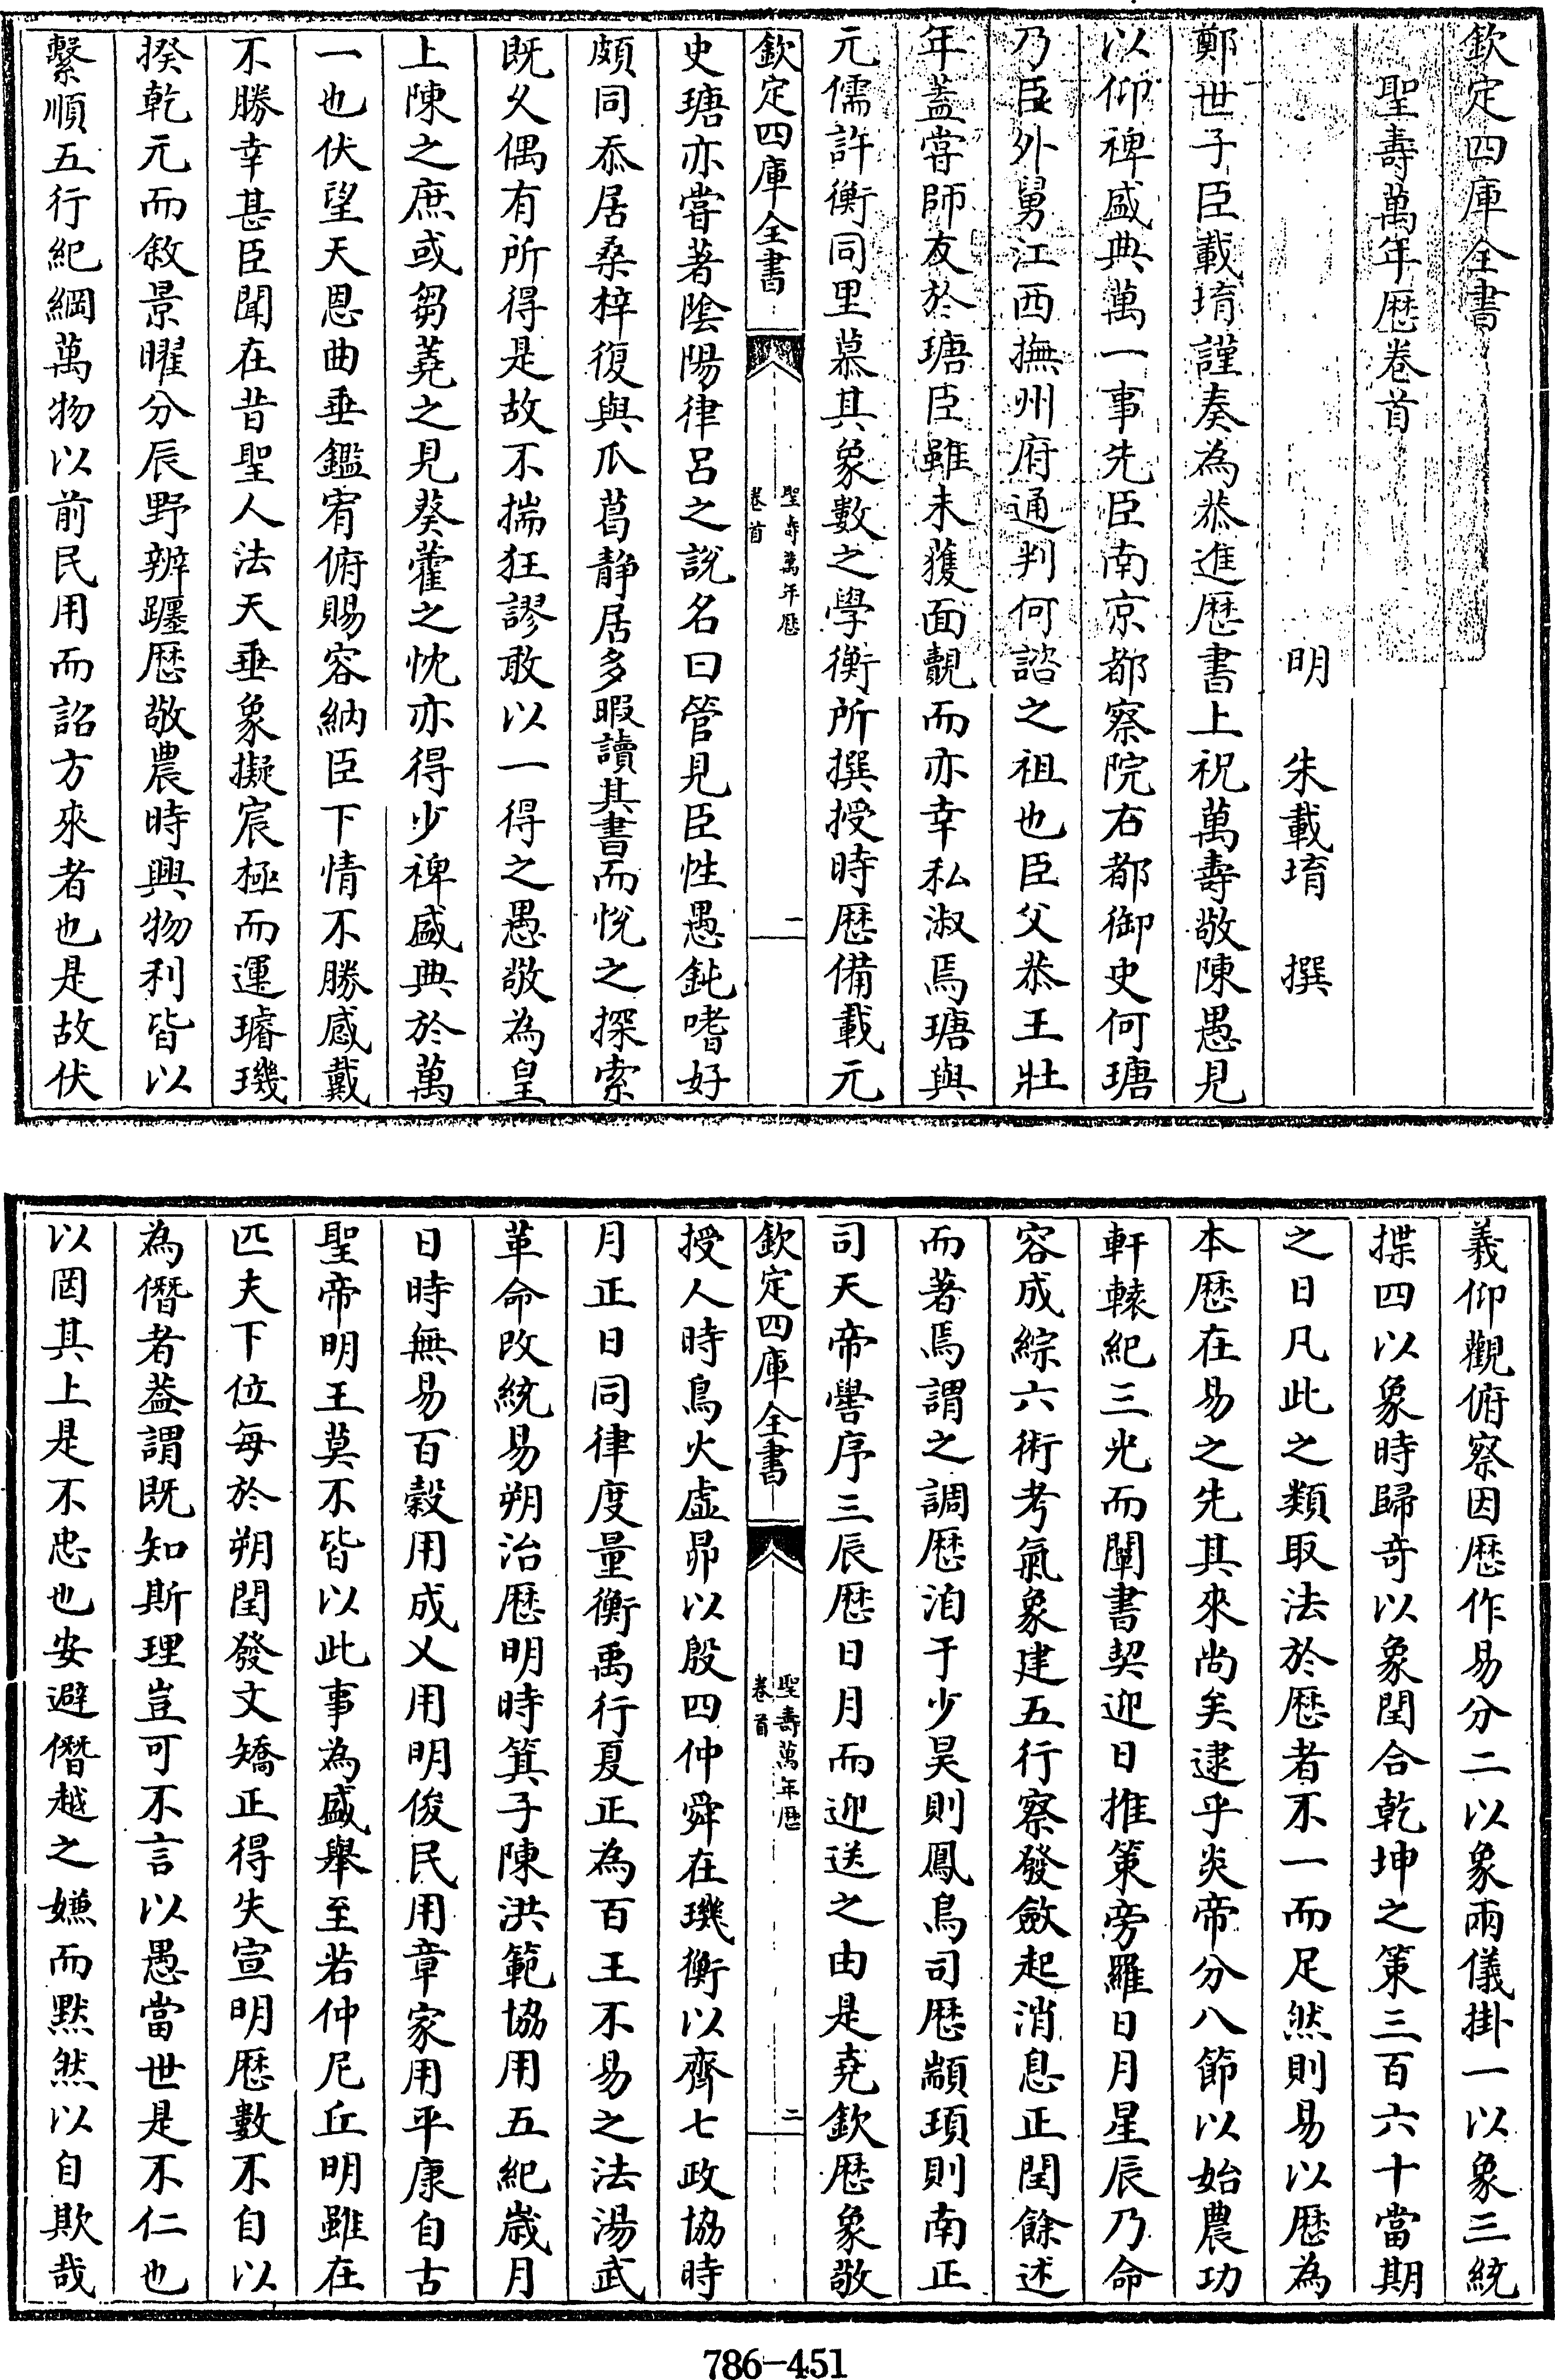 欽定四庫全書
聖壽萬年厯卷首
明 朱載堉 撰
鄭世子臣載堉謹奏為恭進厯書上祝萬壽敬陳愚見
以仰裨盛典萬一事先臣南京都察院右都御史何瑭
乃臣外舅江西撫州府通判何諮之祖也臣父恭王壯
年蓋嘗師友於瑭臣雖未獲面覿而亦幸私淑焉瑭與
元儒許衡同里慕其象數之學衡所撰授時厯備載元
欽定四庫全書
聖壽萬年厯
卷首
一
史瑭亦嘗著陰陽律呂之說名曰管見臣性愚鈍嗜好
頗同忝居桑梓復與瓜葛静居多暇讀其書而悅之探索
既久偶有所得是故不揣狂謬敢以一得之愚敬為皇
上陳之庶或芻蕘之見葵藿之忱亦得少裨盛典於萬
一也伏望天恩曲垂鑑宥俯賜容納臣下情不勝感戴
不勝幸甚臣聞在昔聖人法天垂象擬宸極而運璿璣
揆乾元而敘景曜分辰野辨躔厯敬農時興物利皆以
繫順五行紀綱萬物以前民用而詔方來者也是故伏
羲仰觀俯察因厯作易分二以象兩儀掛一以象三統
揲四以象時歸竒以象閏合乾坤之策三百六十當期
之日凡此之類取法於厯者不一而足然則易以厯為
本厯在易之先其來尚矣逮乎炎帝分八節以始農功
軒轅紀三光而闡書契迎日推策旁羅日月星辰乃命
容成綜六術考氣象建五行察發斂起消息正閏餘述
而著焉謂之調厯洎于少昊則鳳鳥司厯顓頊則南正
司天帝嚳序三辰厯日月而迎送之由是堯欽厯象敬
欽定四庫全書
聖壽萬年厯
卷首
二
授人時鳥火虛昴以殷四仲舜在璣衡以齊七政協時
月正日同律度量衡禹行夏正為百王不易之法湯武
革命改統易朔治厯明時箕子陳洪範協用五紀歲月
日時無易百穀用成乂用明俊民用章家用平康自古
聖帝明王莫不皆以此事為盛舉至若仲尼丘明雖在
匹夫下位每於朔閏發文矯正得失宣明厯數不自以
為僭者葢謂既知斯理豈可不言以愚當世是不仁也
以罔其上是不忠也安避僭越之嫌而默然以自欺哉
786-451